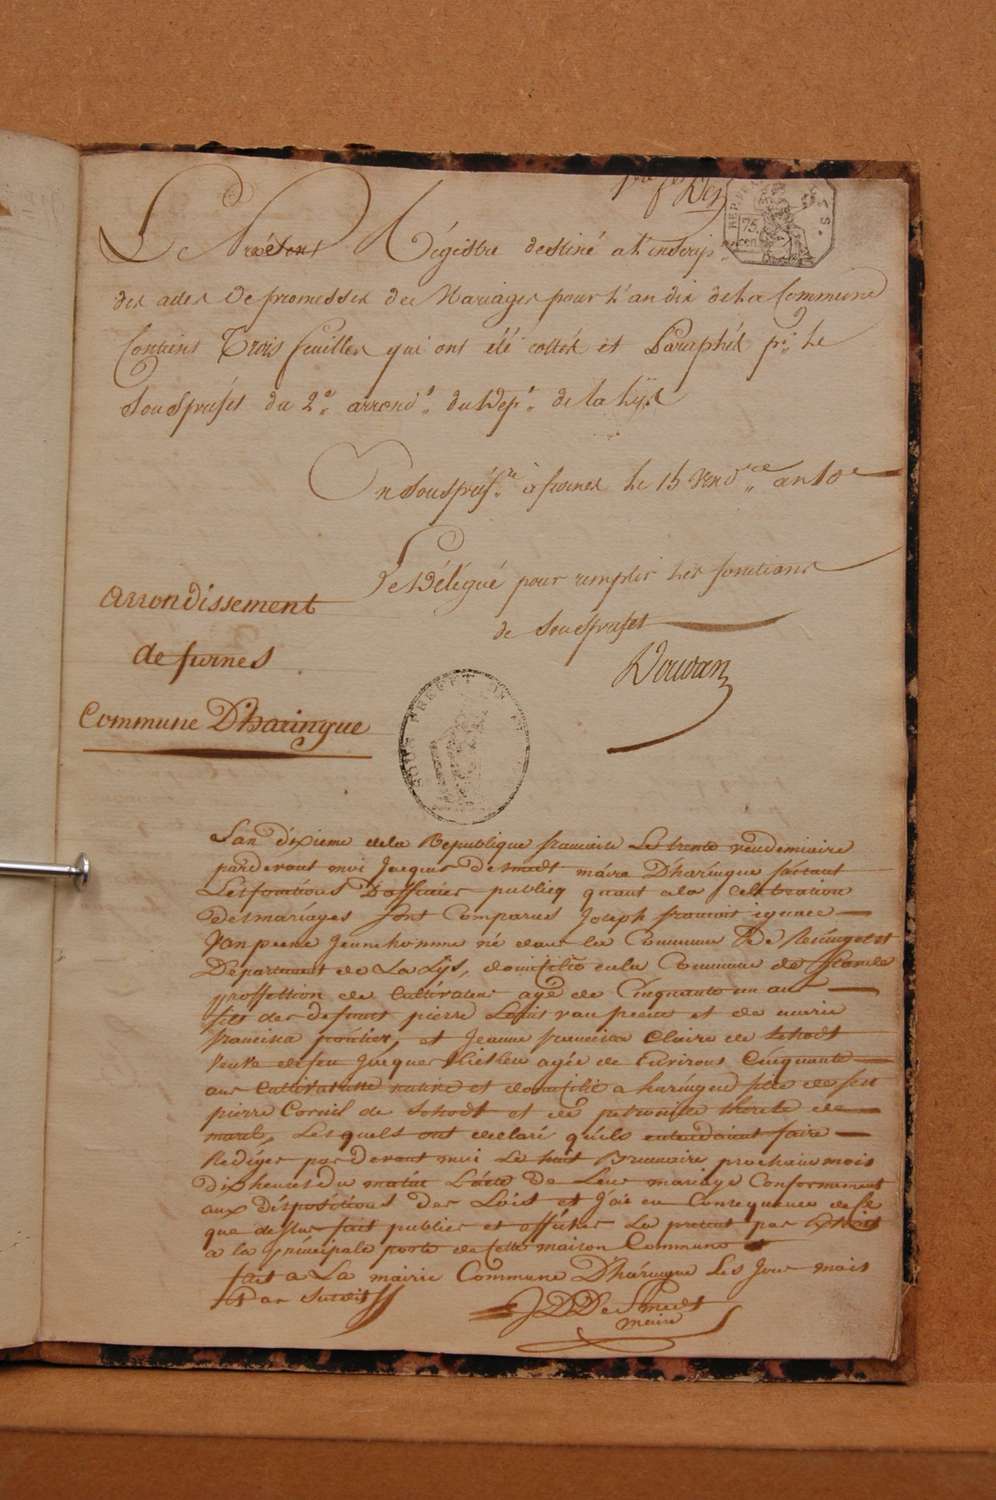 1re f. Der
REP. FRA
75
cen
Le Présent Régistre destiné a l'inscrip.
des actes De promesses de Mariages pour l'an dix de La Commune
Contient Trois feuilles qui ont été cottés et Paraphés pr. Le
Sousprefet du 2e. arrond.t du Dep.t de la Lys
En Sousprefre. à furnes Le 15 vend.re an 10e
Le Délégué pour remplir Les fonctions
de Sousprefet
Arrondissement
de furnes
Commune D'haringue
SOUS PREFECTURE
L'an dixieme de la Republique francaise Le trente vendemiaire
pardevant moi Jacques De Smedt maire D'haringue faisant
Les fonctions D'officier publicq quant a la Celebration
des mariages sont Comparus Joseph francois ignace
Van peene Jeune homme né dans la Commune De Reninget
Departement de La Lys, domicilié en la Commune de
proffession de Cultivateur agé de Cinquante un ans
fils des defunts pierre Louis van peene et de marie
francisca, et Jeanne francisca Claire de Schodt
veuve de feu Jacques agée de Environs Cinquante
ans Cultivatrice native et domicilié a haringue fille de feu
pierre Corneil de Schodt et de petronille therese de
marel, Lesquels ont declaré qu'ils entendaient faire
Rediger par devant moi Le huit Brumaire prochain mois
dix heures du matin L'acte de Leur mariage Conformement
aux Dispositions des Lois et J'ai en Consequence de ce
que dessus fait publier et afficher Le present par Extrait
a la principale porte de Cette maison Commune
fait a La mairie Commune D'haringue Les Jour mois
et an Susdits
J D De Smedt
maire